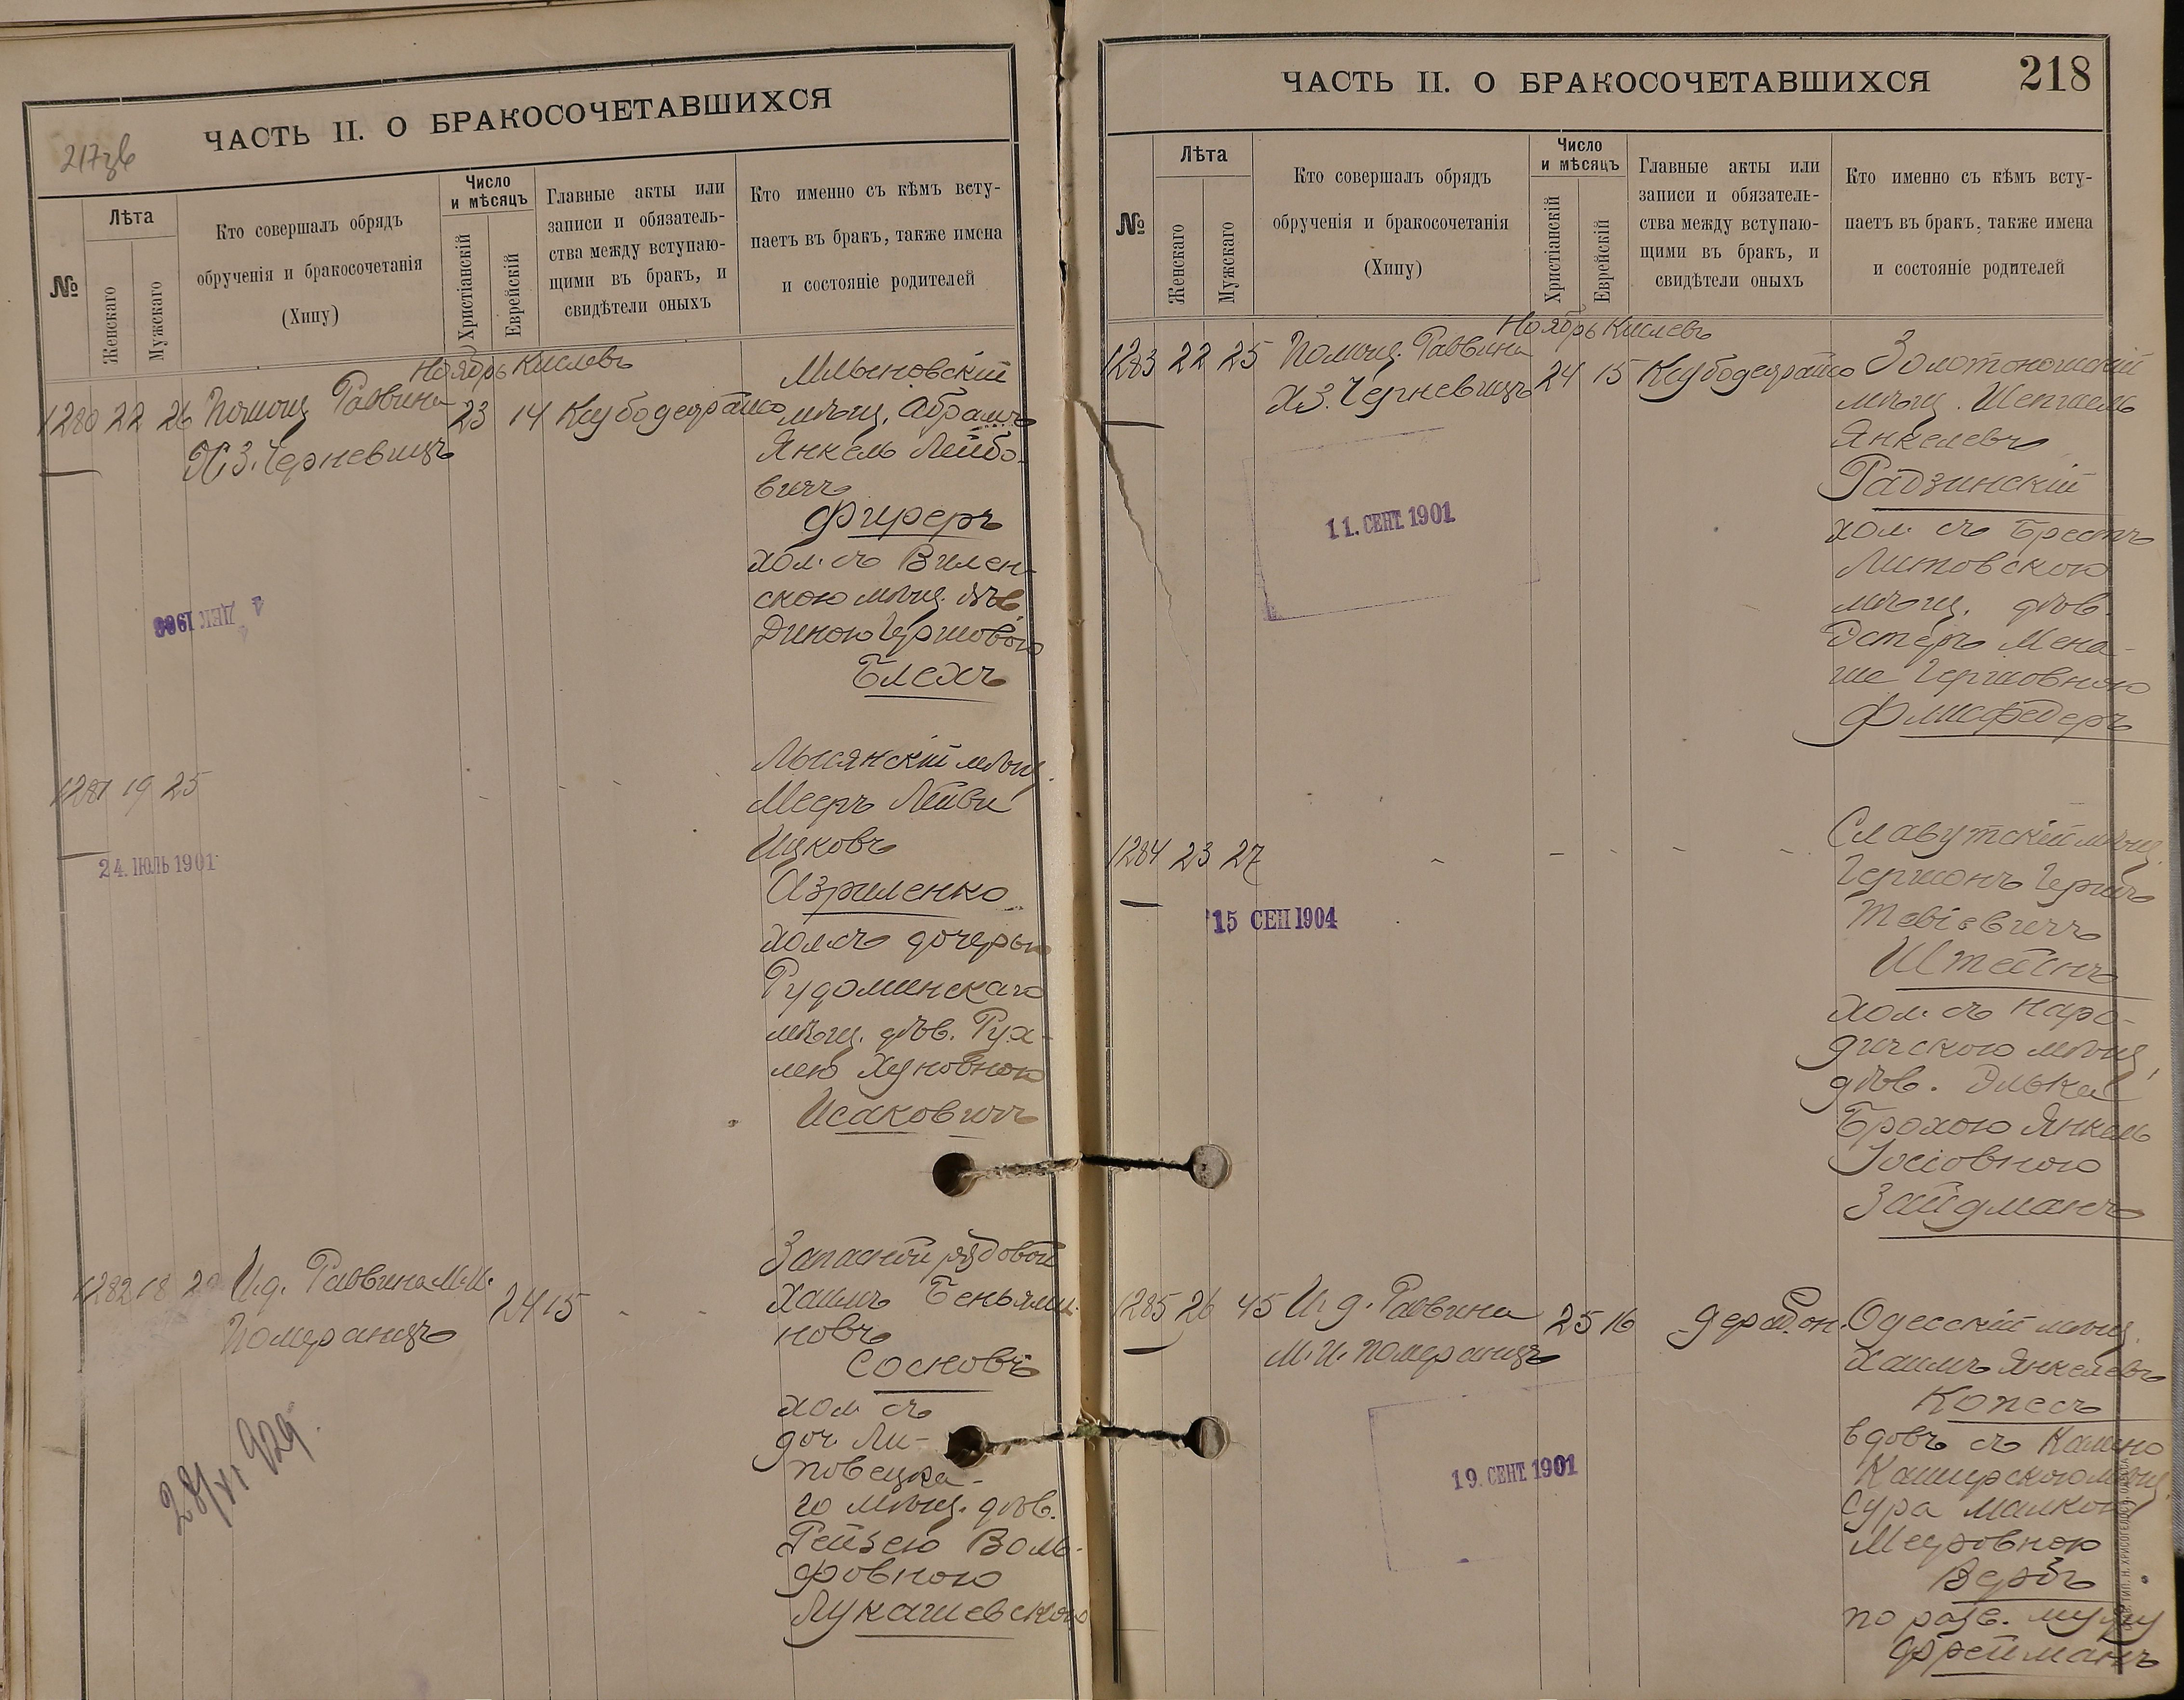 217зв
ЧАСТЬ II. О БРАКОСОЧЕТАВШИХСЯ
№
Лѣта
Женскаго
Мужскаго
Кто совершалъ обрядъ
обрученія и бракосочетанія
(Хипу)
Число
и мѣсяцъ
Христіанскій
Еврейскій
Главные акты или
записи и обязатель-
ства между вступаю-
щими въ бракъ, и
свидѣтели оныхъ
Кто именно съ кѣмъ всту-
паетъ въ бракъ, также имена
и состояніе родителей
Ноябрь Кислевъ
1280 22 26 Помощ. Раввина 23 14
Х.З. Черневицъ
Млыновскій
мѣщ. Абрамъ
Янкель Лейбо-
вичъ
Фиреръ
хол. съ Вилен-
скою мѣщ. дѣв
Диною Гершовою
Блехъ
4 ДЕК 1906
1281 19 25
24. ІЮЛЬ 1901
Лысянскій мѣщ.
Мееръ Лейви
Ицковъ
Азриленко
хол. съ дочерью
Рудоминскаго
мѣщ. дѣв. Рух-
лею Хуновною
Исаковичъ
1282 18 И.д. Раввина М.И. 24 15
Померанцъ
Запасной рядовой
Хаимъ Беньями-
новъ
Сосновъ
хол. съ
доч. Ли-
повецка-
го мѣщ. дѣв.
Рейзею Воль-
фовною
Лукашевскою
28/VI 929.
ЧАСТЬ II. О БРАКОСОЧЕТАВШИХСЯ
218
№
Лѣта
Женскаго
Мужскаго
Кто совершалъ обрядъ
обрученія и бракосочетанія
(Хипу)
Число
и мѣсяцъ
Христіанскій
Еврейскій
Главные акты или
записи и обязатель-
ства между вступаю-
щими въ бракъ, и
свидѣтели оныхъ
Кто именно съ кѣмъ всту-
паетъ въ бракъ, также имена
и состояніе родителей
Ноябрь Кислевъ
1283 22 25 Помощ. Раввина 24 15
Х.З. Черневицъ
Золотоношскій
мѣщ.
Янкелевъ
Радзинскій
хол. съ Брестъ
Литовскою
мѣщ. дѣв.
Эстеръ Мена-
ше Гершовною
Флисфедеръ
11. СЕНТ. 1901
1284 23 27
15 СЕП 1904
Славутскій мѣщ.
Гершонъ Гершъ
Тевіевичъ
Штейнъ
хол. съ Наро-
дичскою мѣщ,
дѣв. Элька
Брохою Янкель
Іосіовною
Зайдманъ
1285 26 45 И.д. Раввина 25 16
М.И. Померанцъ
Одесскій мѣщ.
Хаимъ Янкелевъ
Копесъ
вдовъ съ Камено
Каширскою мѣщ.
Сура Малкою
Мееровною
Вербъ
по разв. мужу
Фрейманъ
19. СЕНТ. 1901